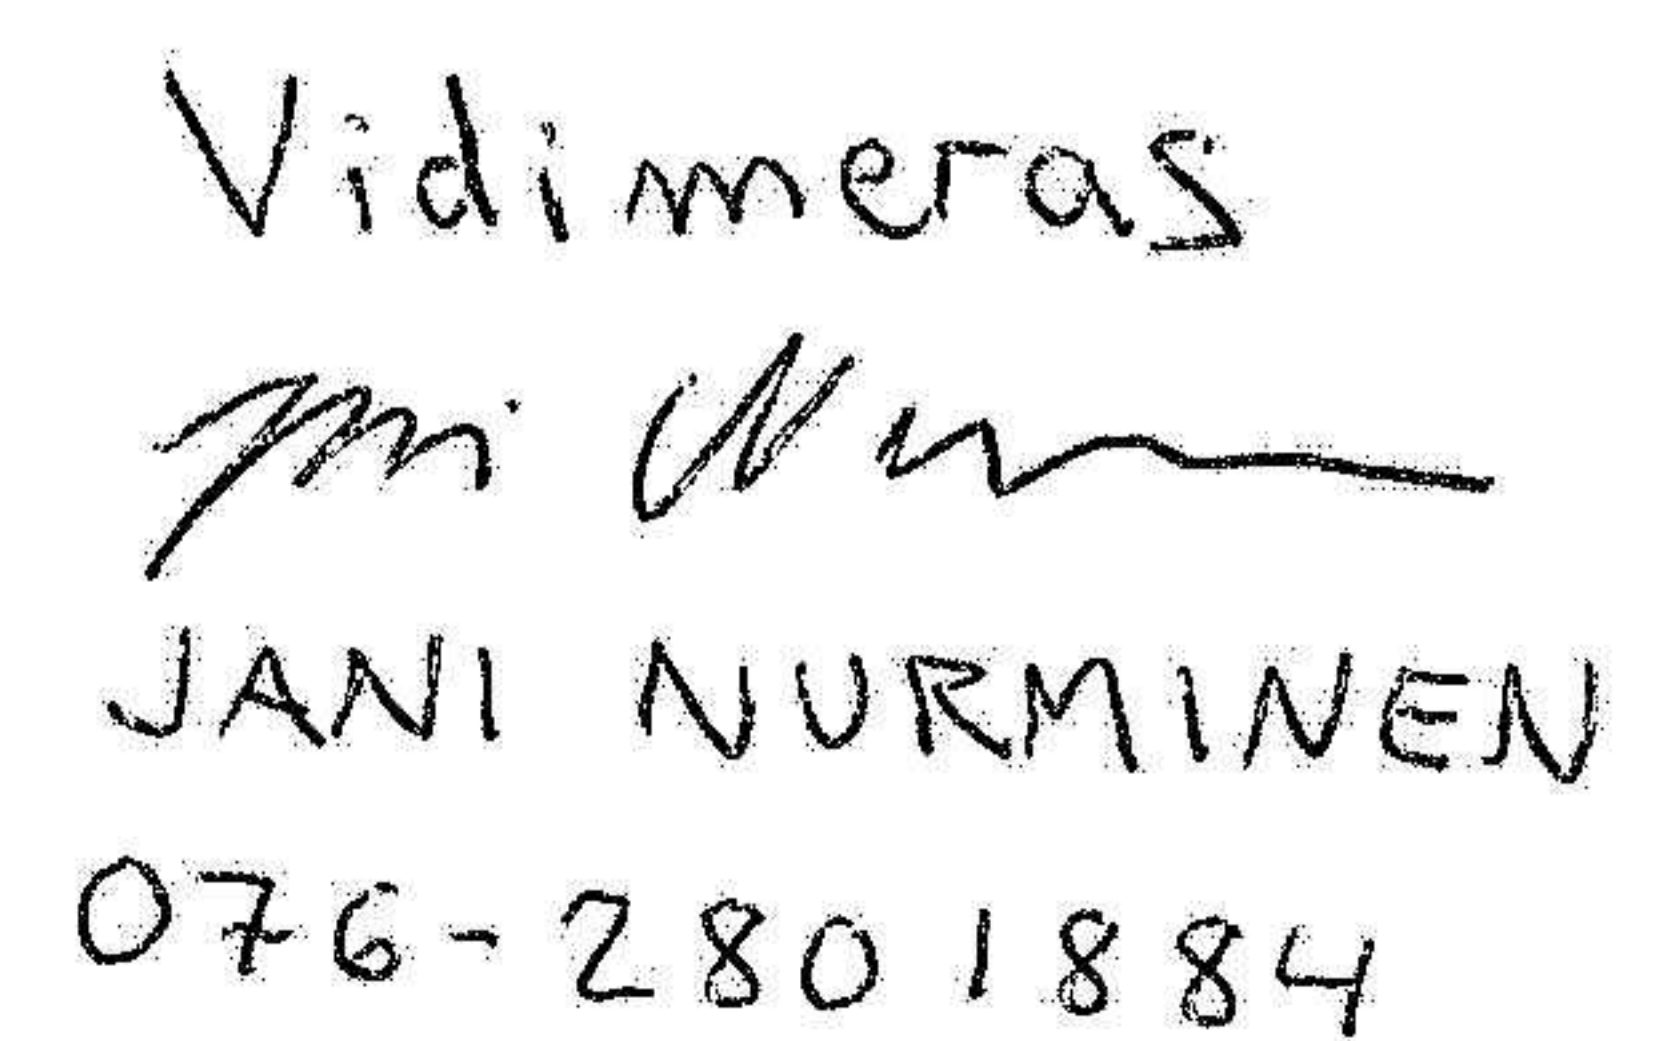 Vidimeras
JANI NURMINEN
076-2801884